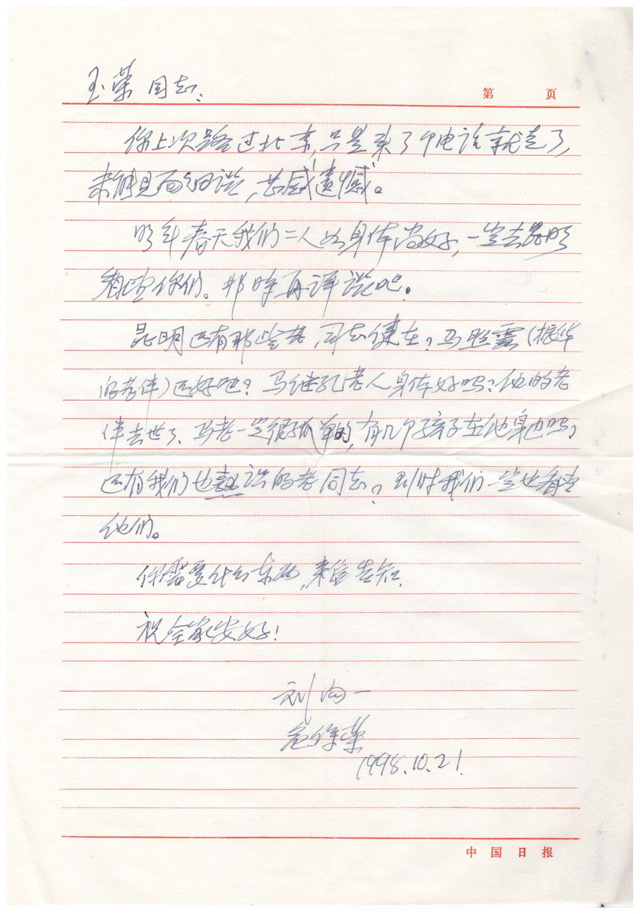 玉荣同志：
第 页
你上次路过北京，只是来了个电话就走了，
未能见面细谈，甚感遗憾。
明年春天我们二人如身体尚好，一定去昆明
看望你们。那时再详谈吧。
昆明还有那些老同志健在？马照云（振华
的老伴）还好吧？马继孔老人身体好吗？他的老
伴去世了，马老一定很孤单的，有几个孩子在他身边吗？
还有我们也熟识的老同志？到时我们一定也看看
他们。
你需要什么东西，来信告知。
祝全家安好！
刘向一
保荣
1998.10.21.
中国日报